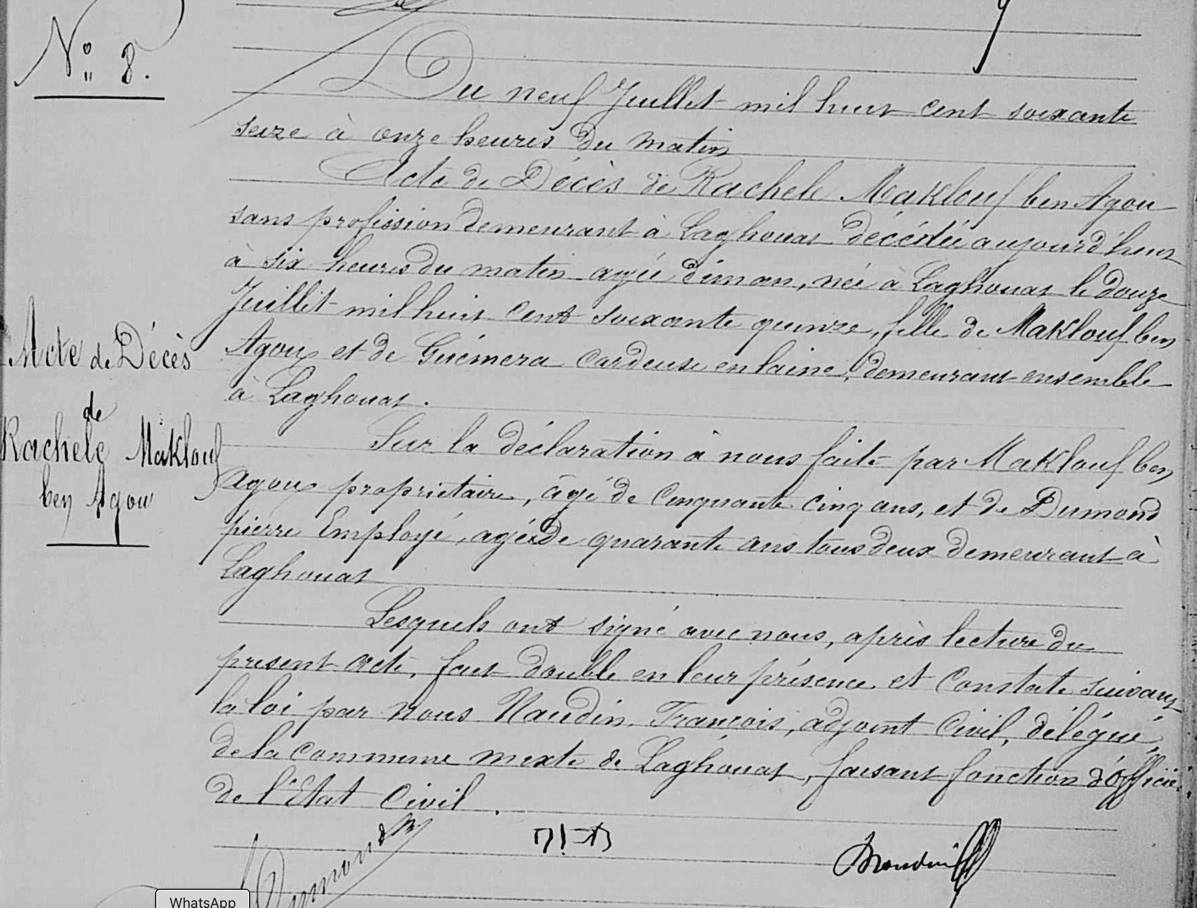 N° 8.
Du neuf Juillet mil huit cent soixante
seize à onze heures du matin
Acte de Décès de Rachele Maklouf ben Agou
sans profission demeurant à Laghouat décédée aujourd'hui
à six heures du matin agée d'un an, née à Laghouat le douze
Juillet mil huit cent soixante quinze, fille de Maklouf ben
Agou et de Guémera cardeuse en laine, demeurant ensemble
à Laghouat.
Acte de Décès
de
Rachele Maklouf
ben Agou
Sur la déclaration à nous faite par Maklouf ben
Agou propriétaire, âgé de cinquante cinq ans, et de Dumond
pierre Employé, agé de quarante ans tous deux demeurant à
Laghouat
Lesquels ont signé avec nous, après lecture du
present acte, fait double en leur présence et constaté suivant
la loi par Nous Naudin François, adjoint Civil, délégué
de la commune mixte de Laghouat, faisant fonction d'officier
de l'Etat Civil.
Dumond
WhatsApp